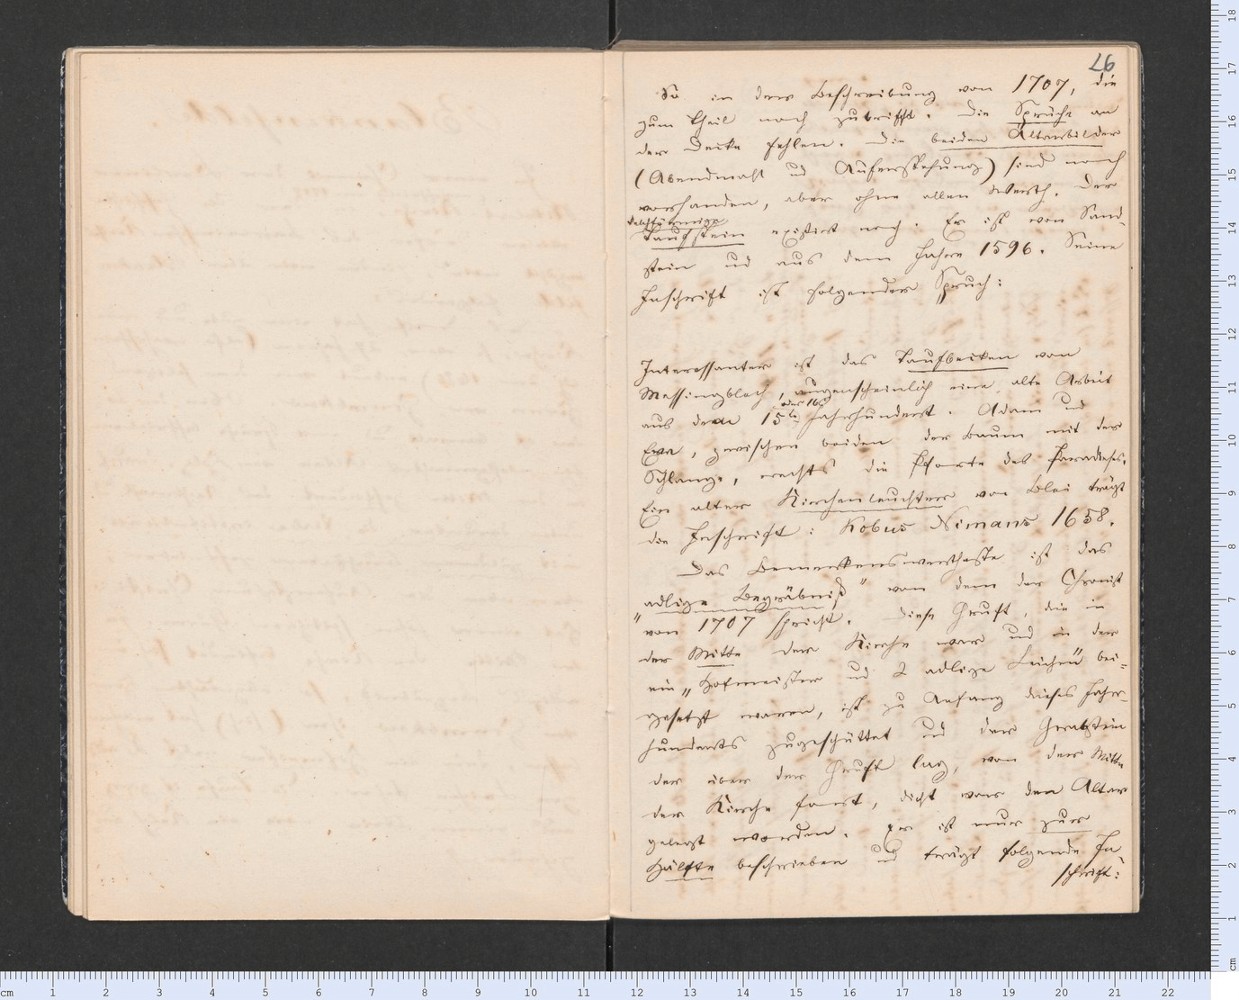 26
So in der Beschreibung von 1707, die
zum Theil noch zutrifft. Die Sprüche an
der Decke fehlen. Die beiden Altarbilder
(Abendmahl und Auferstehung) sind noch
vorhanden, aber ohne allen Werth. Der
kelchförmige
Taufstein existirt noch. Er ist von Sand-
stein und aus dem Jahre 1596. Seine
Inschrift ist folgender Spruch:
Interessanter ist das Taufbecken von
Messingblech, augenscheinlich eine alte Arbeit
oder 16
aus dem 15ten Jahrhundert. Adam und
Eva, zwischen beiden der Baum mit der
Schlange, rechts die Pforte des Paradieses.
Ein alter Kirchenleuchter von Blei trägt
die Inschrift: Kobus Nimans 1658.
Das Bemerkenswertheste ist das
"adlige Begräbniß" von dem der Chronist
von 1707 spricht. Diese Gruft, die in
der Mitte der Kirche war und in der
ein "Hofmeister und 2 adlige Leichen" bei-
gesetzt waren, ist zu Anfang dieses Jahr-
hunderts zugeschüttet und der Grabstein
der über der Gruft lag, von der Mitte
der Kirche fort, dicht vor den Altar
gelegt worden. Er ist nur zur
Hälfte beschrieben und trägt folgende In
schrift: